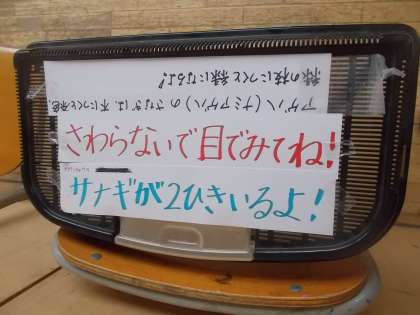 アゲハ(ナミアゲハ)のさなぎは、木につくと茶色、
緑の枝につくと緑になるよ!
さわらないで目でみてね!
サナギが2ひきいるよ!